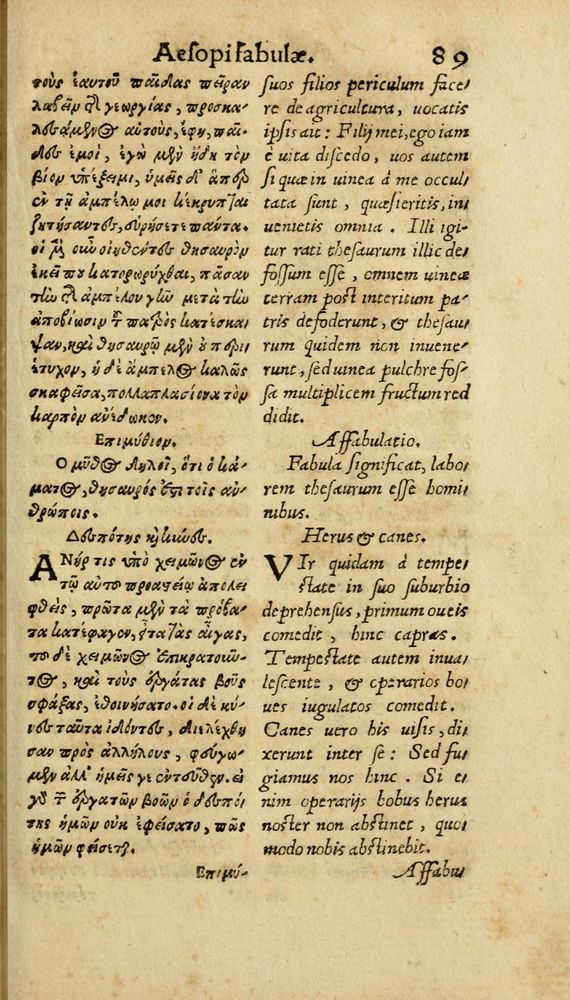 Aesopi fabulæ. 89
τοὺς ἑαυτοῦ παῖδας πεῖραν
λαβεῖν τῆς γεωργίας, προσκα-
λεσάμενος αὐτοὺς, ἔφη, παῖ-
δες ἐμοὶ, ἐγὼ μὲν ἤδη τοῦ
βίου ὑπέξειμι, ὑμεῖς δ' ἅπερ
ἐν τῇ ἀμπέλῳ μοι κέκρυπται
ζητήσαντες, εὑρήσετε πάντα.
οἱ μὲν οὖν οἰηθέντες θησαυρὸν
ἐκεῖ που κατορωρύχθαι, πᾶσαν
τὴν τῆς ἀμπέλου γῆν μετὰ τὴν
ἀποβίωσιν τοῦ πατρὸς κατέσκα
ψαν, καὶ θησαυρῷ μὲν οὐ περι-
έτυχον, ἡ δὲ ἄμπελος καλῶς
σκαφεῖσα, πολλαπλασίονα τὸν
καρπὸν ἀνέδωκεν.
Επιμύθιον.
Ο μῦθος δηλοῖ, ὅτι ὁ κά-
ματος, θησαυρός ἐστι τοῖς ἀν
θρώποις.
Δεσπότης κỳ κύνες.
ΑΝήρ τις ὑπὸ χειμῶνος ἐν
τῷ αὐτοῦ προαστείῳ ἀπολει
φθεὶς, πρῶτα μὲν τὰ πρόβα-
τα κατέφαγεν, εἶτα τὰς αἶγας,
τοῦ δὲ χειμῶνος ἐπικρατοῦν-
τος, καὶ τοὺς ἐργάτας βοῦς
σφάξας, ἐθοινήσατο. οἱ δὲ κύ-
νες ταῦτα ἰδόντες, διελέχθη
σαν πρὸς ἀλλήλους, φεύγω-
μεν ἀλλ' ἡμεῖς γε ἐντεῦθεν. εἰ
γὰρ τῶν ἐργατῶν βοῶν ὁ δεσπό-
της ἡμῶν οὐκ ἐφείσατο, πῶς
ἡμῶν φείσεται;
Επιμύ-
suos filios periculum face
re de agricultura, uocatis
ipsis ait: Filij mei, ego iam
è uita discedo, uos autem
si quæ in uinea à me occul
tata sunt, quæsieritis, in
uenietis omnia. Illi igi
tur rati thesaurum illic de
fossum esse, omnem uineæ
terram post interitum pa
tris defoderunt, & thesau
rum quidem non inuene
runt, sed uinea pulchre fos
sa multiplicem fructum red
didit.
Affabulatio.
Fabula significat, labo
rem thesaurum esse homi
nibus.
Herus & canes.
VIr quidam à tempe
state in suo suburbio
deprehensus, primum oueis
comedit, hinc capras.
Tempestate autem inua
lescente, & operarios bo
ues iugulatos comedit.
Canes uero his uisis, di
xerunt inter se: Sed fu
giamus nos hinc. Si e
nim operarijs bobus herus
noster non abstinet, quo
modo nobis abstinebit.
Affabu